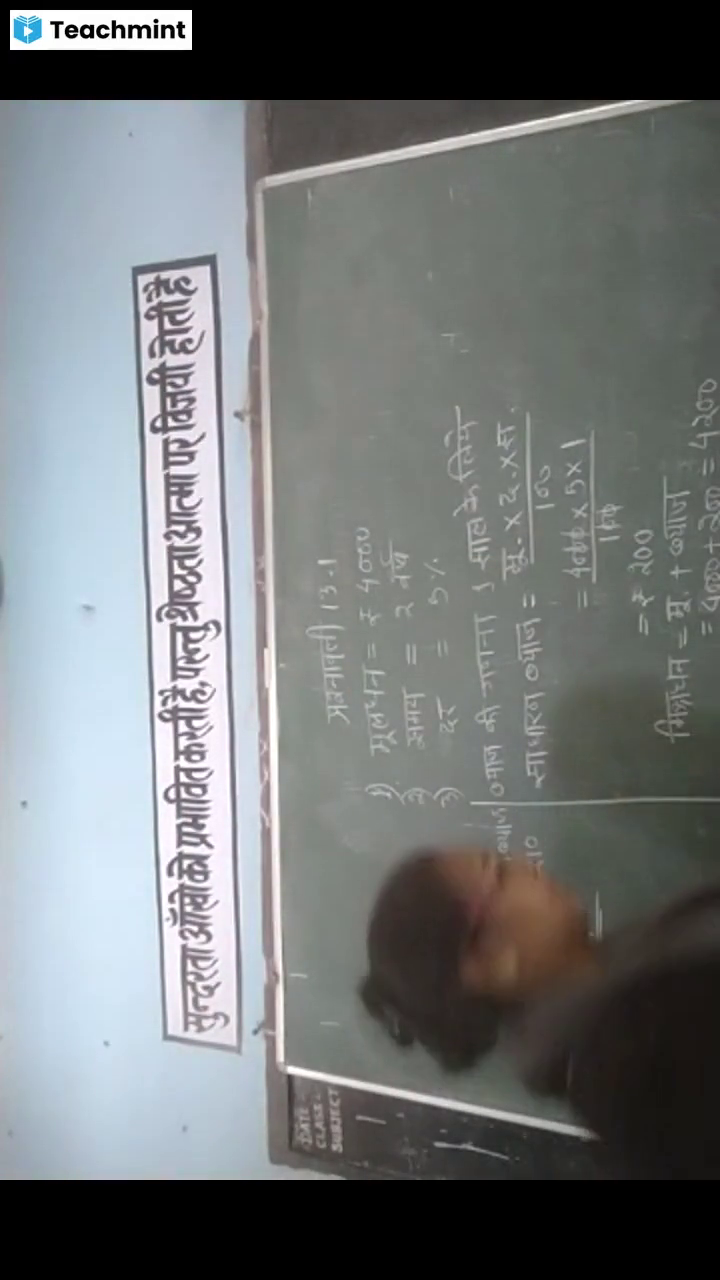 Teachmint
सुन्दरता आँखो को प्रभावित करती है, परन्तु श्रेष्ठता आत्मा पर विजयी होती है
प्रश्नावली 13.1
1) मूलधन = ₹ 4000
2) समय = 2 वर्ष
3) दर = 5%
ब्याज की गणना 1 साल के लिये
साधारण ब्याज = मू. × द. × स. / 100
= 4000 × 5 × 1 / 100
= ₹ 200
मिश्रधन = मू. + ब्याज
= 4000 + 200 = 4200
DATE-
CLASS-
SUBJECT